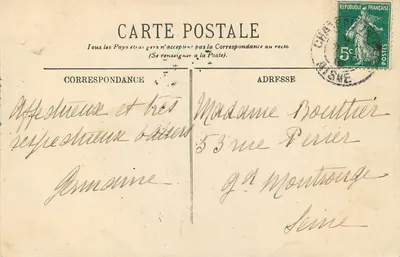 CARTE POSTALE
Tous les Pays étrangers n'acceptent pas la Correspondance au recto
(Se renseigner à la Poste).
CORRESPONDANCE
ADRESSE
Affectueux et très
respectueux baisers
Germaine
Madame Bouthier
53 rue Perier
Gd Montrouge
Seine
5c